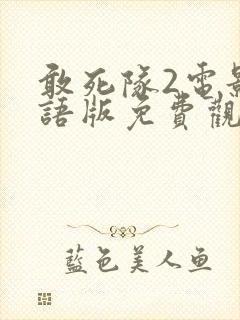 敢死隊2電影
語版免費觀
藍色美人鱼